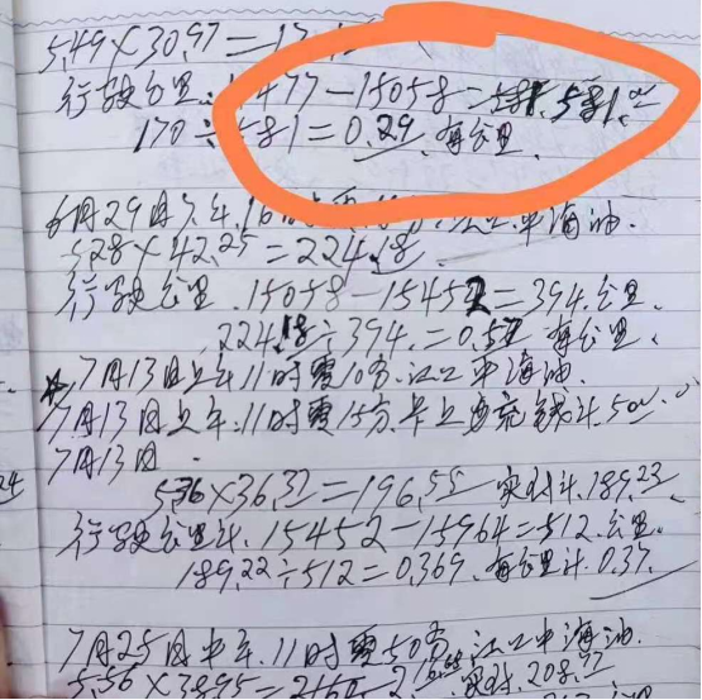 5,49×30,97=17
行驶公里:1477-15058=581,581,
170÷581=0.29,每公里,
6月29日 午,16 中海油.
528×42,25=224,18
行驶公里.15058-15452=394.公里、
224,18÷394.=0.57 每公里、
7月13日上午11时零10分.江口中海油.
7月13日上午:11时零15分.卡上再充钱计.500
7月13日.
5,36×36,37=196,55 实付计.189,23、
行驶公里计.15452-15964=512.公里.
189,22÷512=0.369、每公里计.0.37、
7月25日中午.11时零50分.江口中海油.
5,56×38,95= 实付.208,77